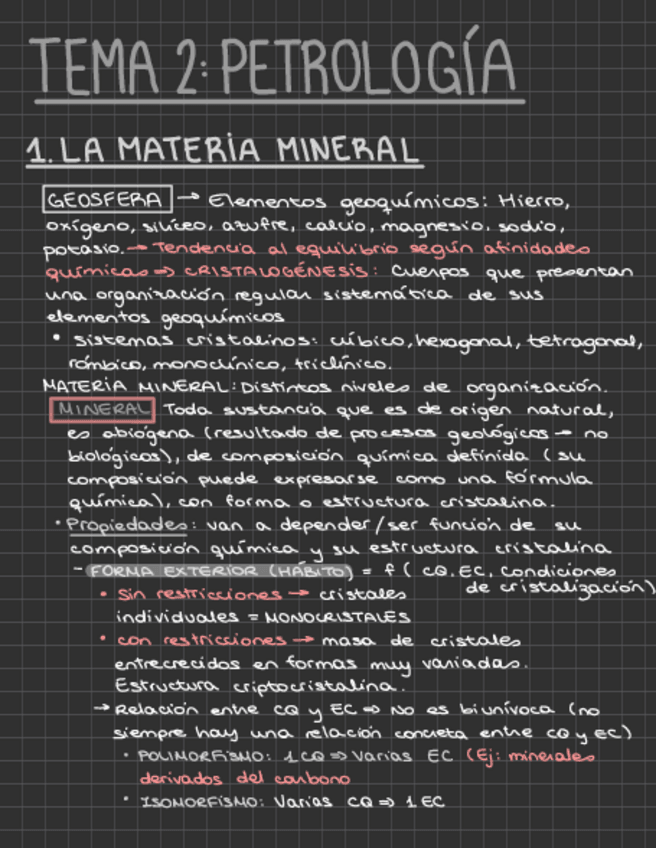 TEMA 2: PETROLOGÍA
1. LA MATERIA MINERAL
GEOSFERA → Elementos geoquímicos: Hierro,
oxígeno, silíceo, azufre, calcio, magnesio, sodio,
potasio. → Tendencia al equilibrio según afinidades
químicas => CRISTALOGÉNESIS: Cuerpos que presentan
una organización regular sistemática de sus
elementos geoquímicos
• Sistemas cristalinos: cúbico, hexagonal, tetragonal,
rómbico, monoclínico, triclínico.
MATERIA MINERAL: Distintos niveles de organización.
MINERAL Toda sustancia que es de origen natural,
es abiógena (resultado de procesos geológicos → no
biológicos), de composición química definida (su
composición puede expresarse como una fórmula
química), con forma o estructura cristalina.
• Propiedades: van a depender/ser función de su
composición química y su estructura cristalina
- FORMA EXTERIOR (HÁBITO) = f ( CQ, EC, condiciones
de cristalización)
• Sin restricciones → cristales
individuales = MONOCRISTALES
• con restricciones → masa de cristales
entrecrecidos en formas muy variadas.
Estructura criptocristalina.
→ Relación entre CQ y EC => No es biunívoca (no
siempre hay una relación concreta entre CQ y EC)
• POLIMORFISMO: 1 CQ => Varias EC (Ej: minerales
derivados del carbono
• ISOMORFISMO: Varias CQ => 1 EC